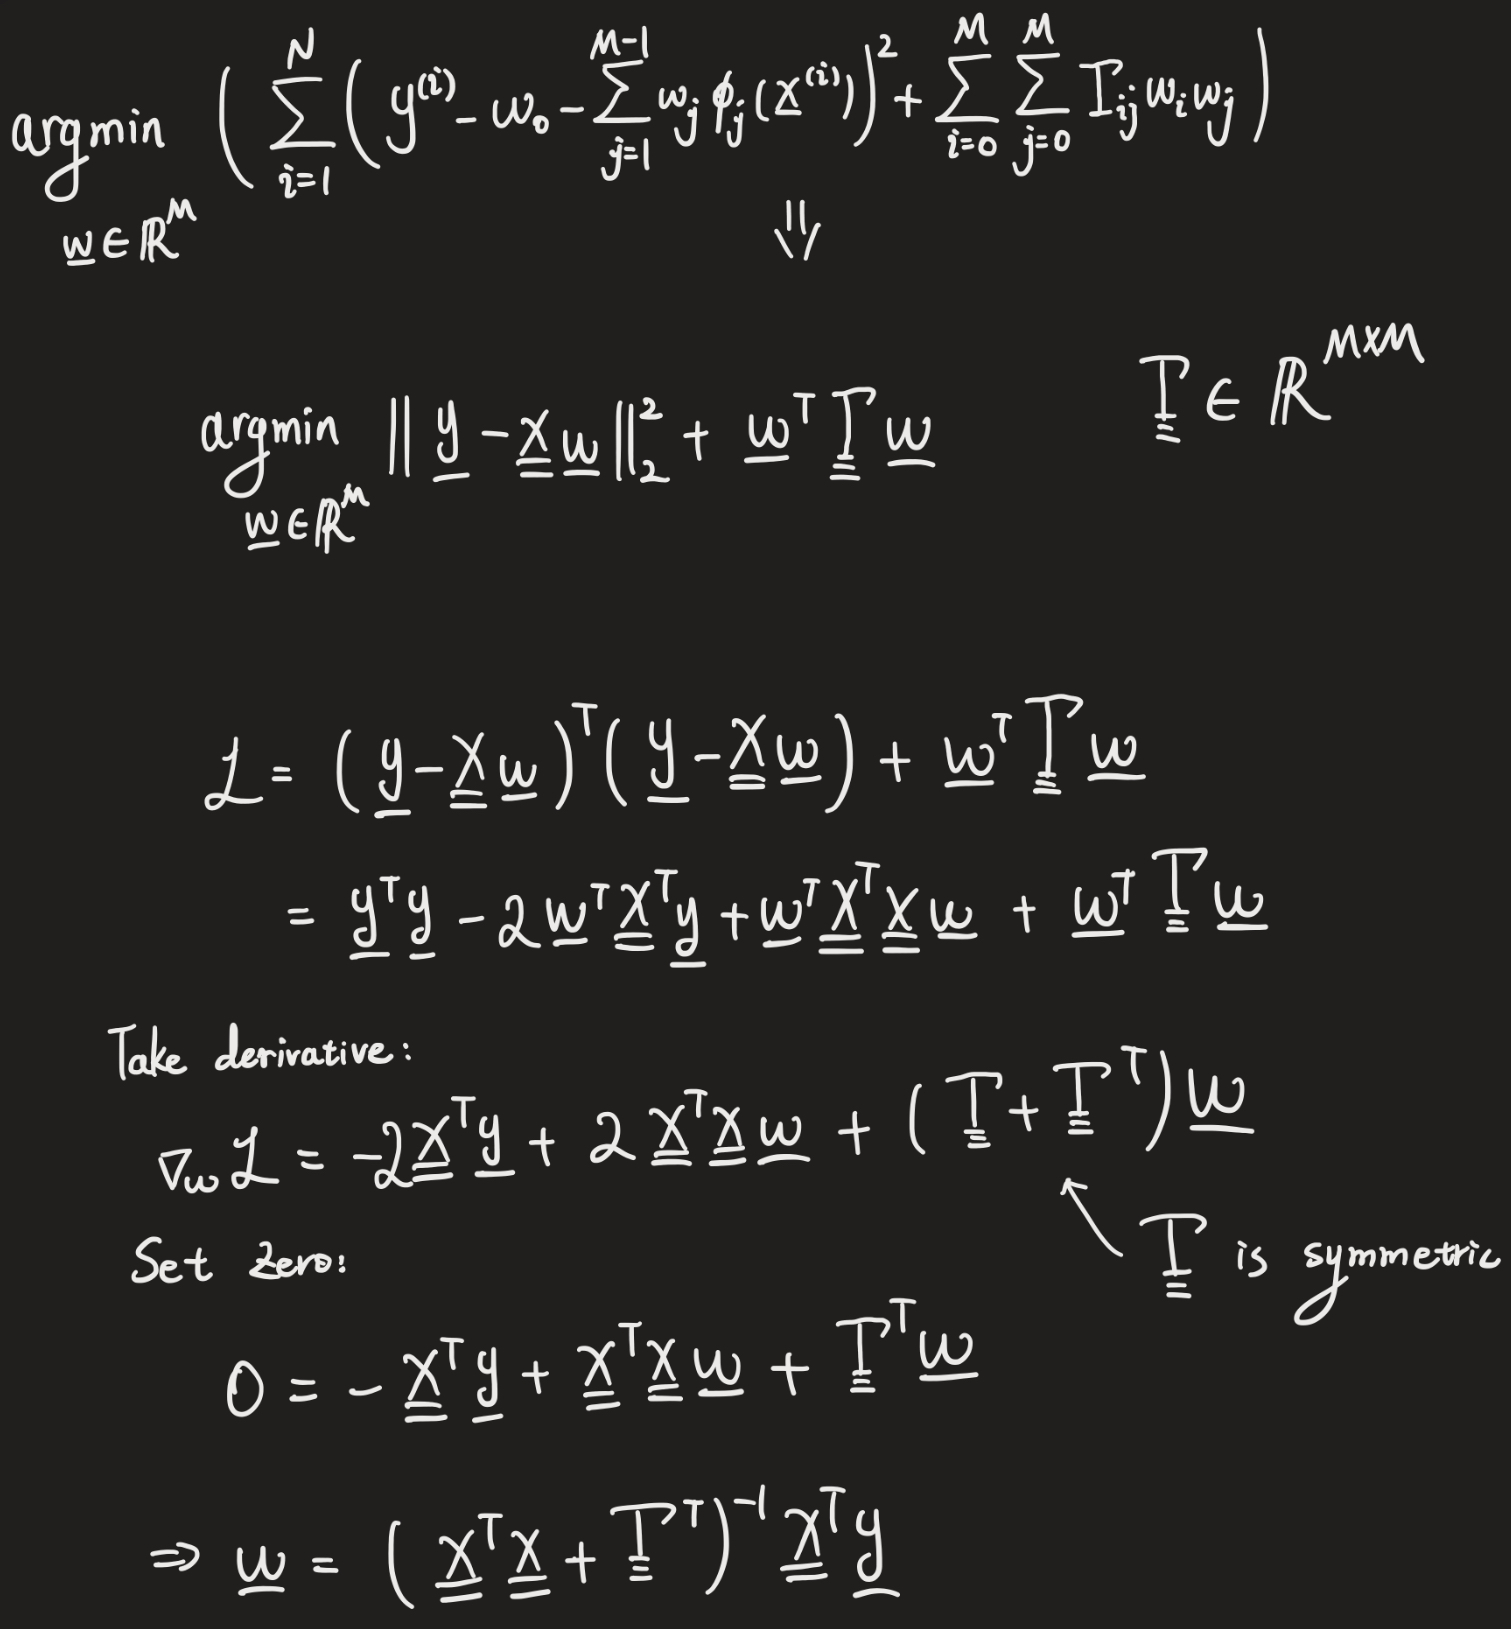 argmin_{w̲∈ℝ^M} ( ∑_{i=1}^{N} ( y^{(i)} - w_0 - ∑_{j=1}^{M-1} w_j ϕ_j(x̲^{(i)}) )^2 + ∑_{i=0}^{M} ∑_{j=0}^{M} Γ_{ij} w_i w_j )
⇓
argmin_{w̲∈ℝ^M} ‖ y̲ - X̳ w̲ ‖_2^2 + w̲^T Γ̳ w̲    Γ̳ ∈ ℝ^{M×M}
ℒ = ( y̲ - X̳ w̲ )^T ( y̲ - X̳ w̲ ) + w̲^T Γ̳ w̲
= y̲^T y̲ - 2 w̲^T X̳^T y̲ + w̲^T X̳^T X̳ w̲ + w̲^T Γ̳ w̲
Take derivative:
∇_w ℒ = -2 X̳^T y̲ + 2 X̳^T X̳ w̲ + ( Γ̳ + Γ̳^T ) w̲
↖ Γ̳ is symmetric
Set zero:
0 = - X̳^T y̲ + X̳^T X̳ w̲ + Γ̳^T w̲
⇒ w̲ = ( X̳^T X̳ + Γ̳^T )^{-1} X̳^T y̲